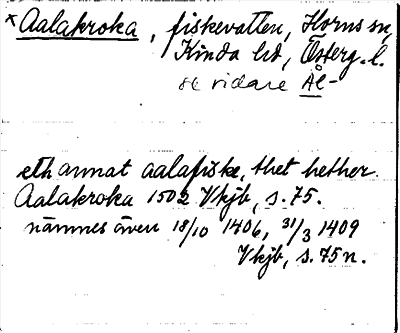 × Aalakroka, fiskevatten, Horns sn,
Kinda hd, Österg. l.
se vidare Ål-
eth annat aalafiske, thet hether
Aalakroka 1502 Vkjb, s. 75.
nämnes även 18/10 1406, 31/3 1409
Vkjb, s. 75 n.